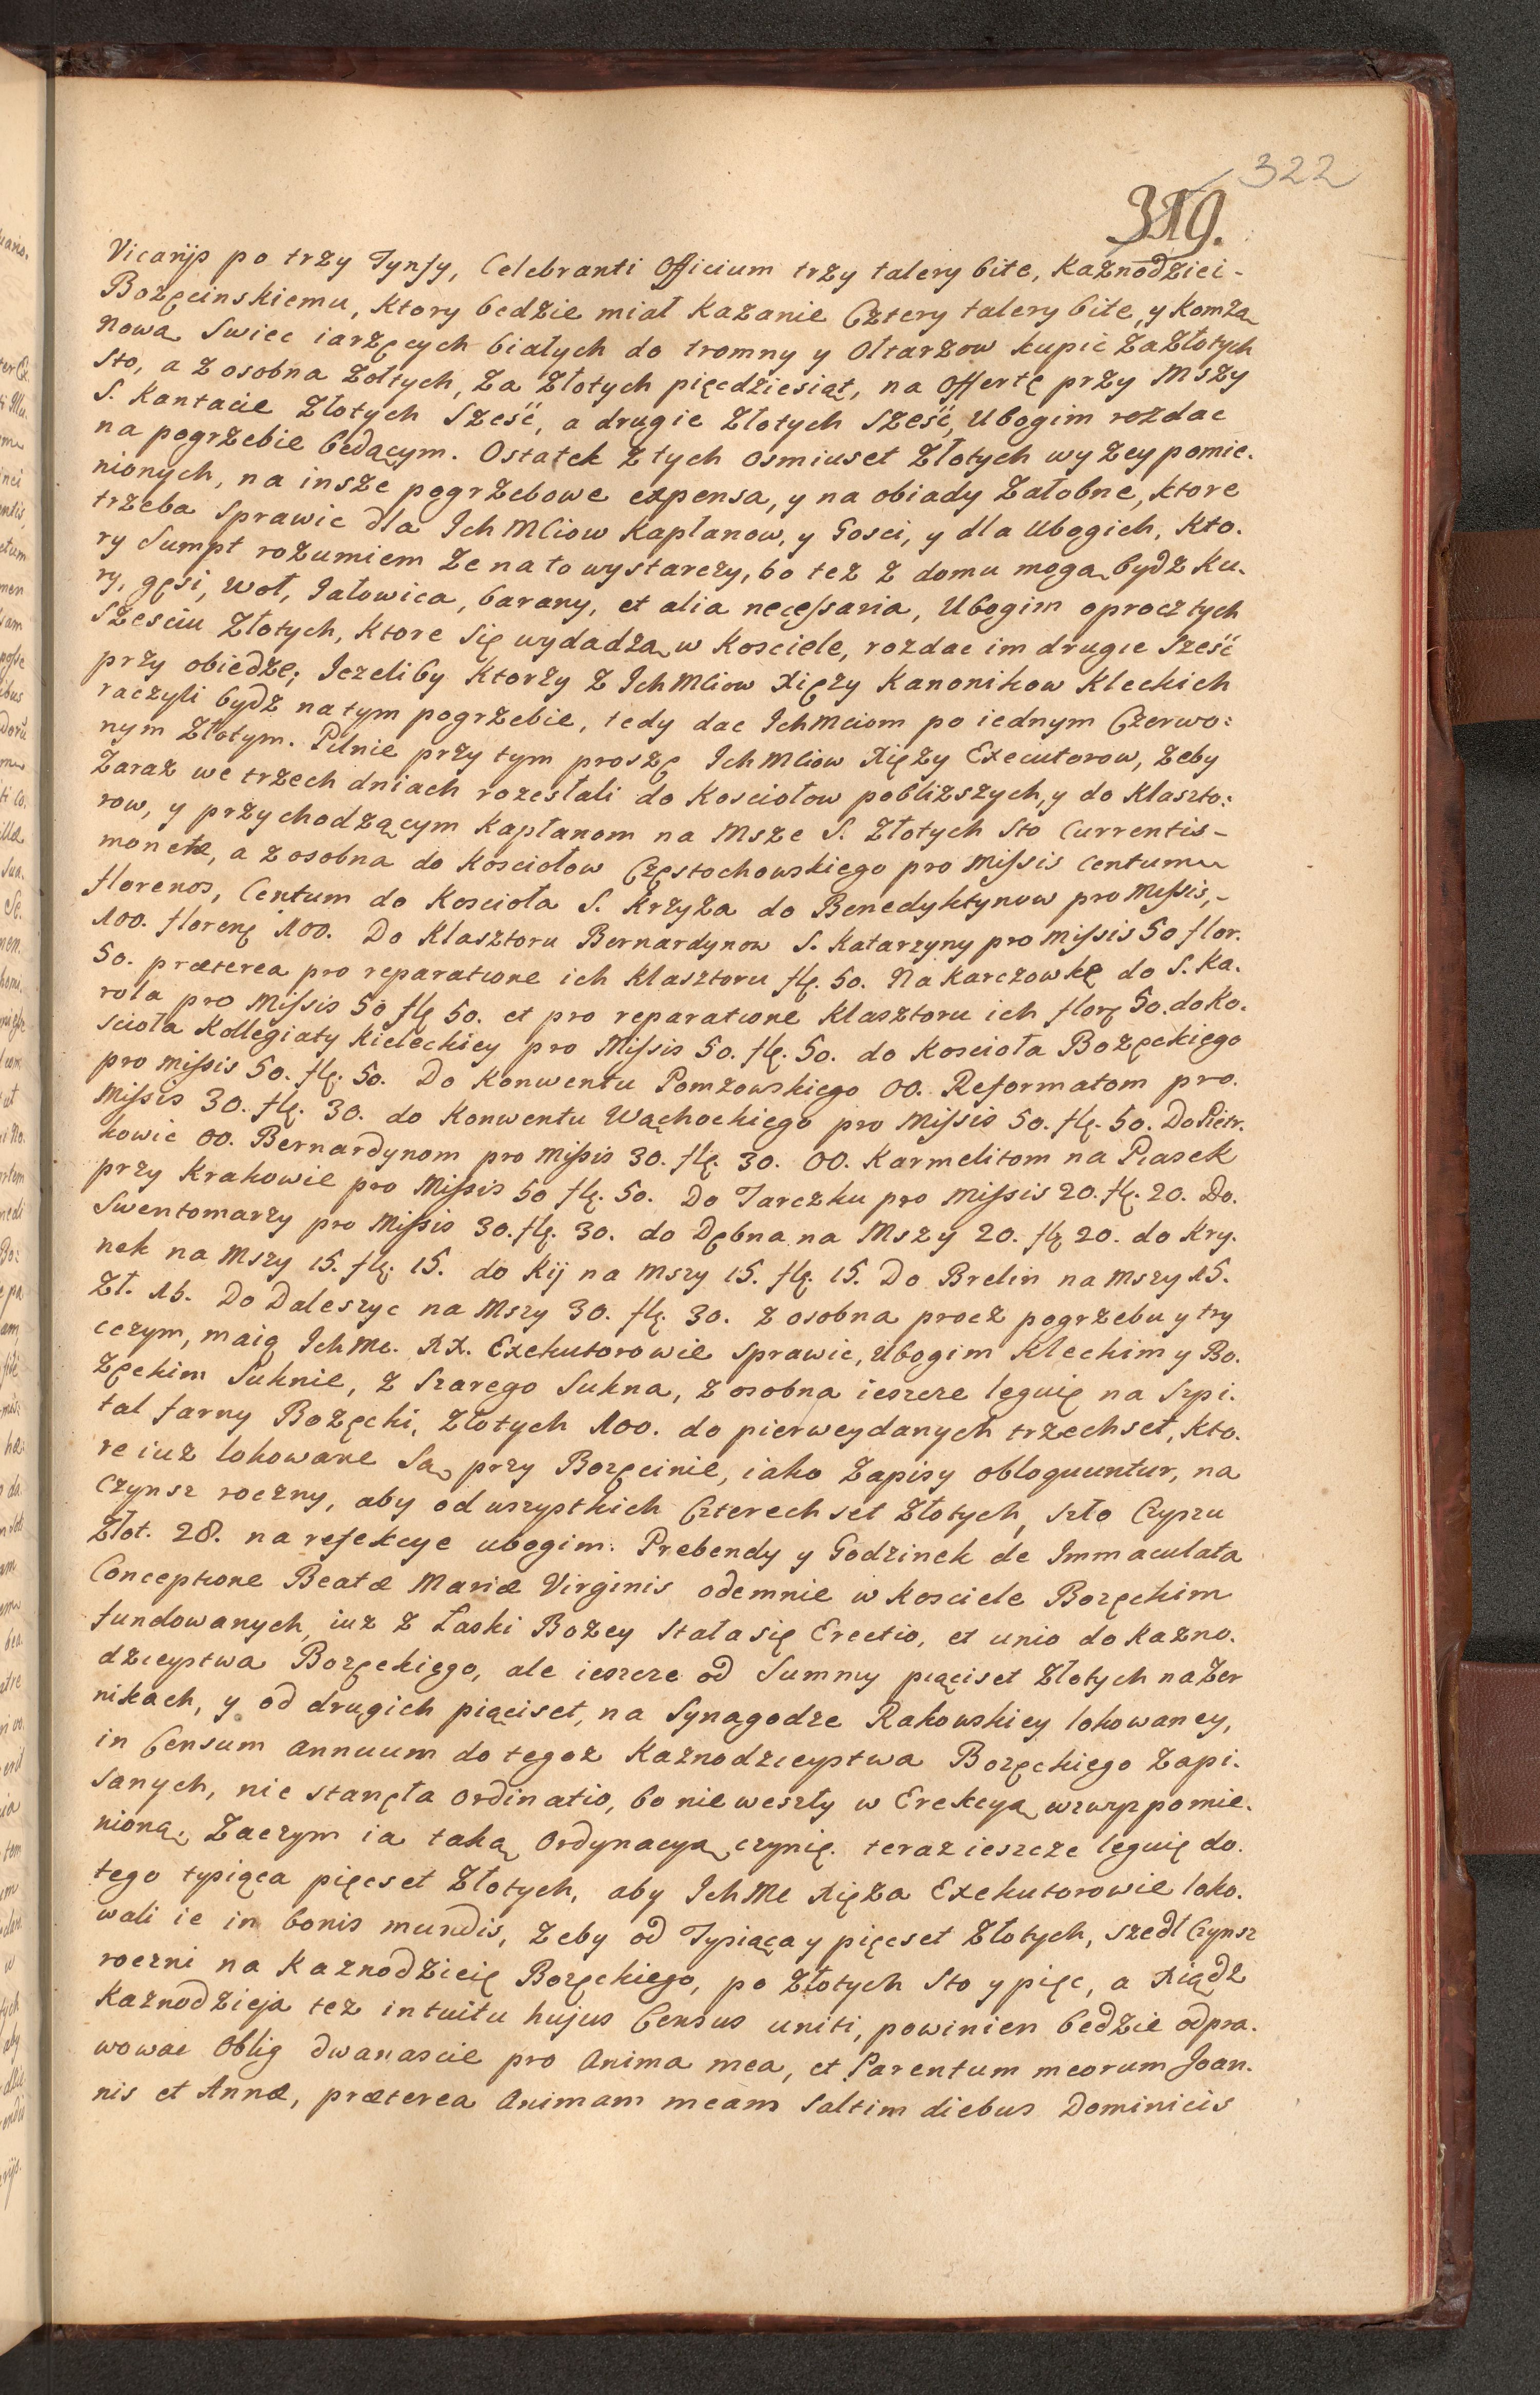 322
319.
Vicarijs po trzy Tynfy, Celebranti Officium trzy talery bite, Kaznodziei-
Bozęcinskiemu, ktory bedzie miał Kazanie Cztery talery bite, y Komżą
nową Swiec iarzęcych białych do tromny y Ołtarzow kupic za Złotych
Sto, a z osobna żołtych, za Złotych pięcdziesiąt, na Offertę przy Mszy
S. Kantacie Złotych Sześć, a drugie Złotych Sześć, Ubogim rozdac
na pogrzebie będącym. Ostatek z tych osmiuset Złotych wyżeypomie-
nionych, na insze pogrzebowe expensa, y na obiady żałobne, ktore
trzeba Sprawic dla Ich Mciow Kapłanow, y Gosci, y dla Ubogich, Kto-
ry Sumpt rozumiem że na to wystarczy, bo też z domu mogą bydź ku-
ry, gęsi, woł, Jałowica, barany, et alia necessaria, Ubogim oprocz tych
Szesciu Złotych, Ktore Się wydadzą w Kosciele, rozdac im drugie Sześć
przy obiedze; Iezeliby Ktorzy z Ich Mciow Xięzy Kanonikow Kleckich
raczyli bydź na tym pogrzebie, tedy dac Ichmciom po iednym Czerwo-
nym Złotym. Pilnie przy tym proszę Ich Mciow Xięzy Executorow, żeby
Zaraz we trzech dniach rozesłali do Kosciołow pobliższych, y do Klaszto-
row, y przychodzącym Kapłanom na Msze S. Złotych Sto Currentis-
monetæ, a z osobna do Kosciołow Częstochowskiego pro Missis Centum
florenos, Centum do Koscioła S. Krzyża do Benedyktynow pro Missis,-
100. florenę 100. Do Klasztoru Bernardynow S. Katarzyny pro Missis 50 flor.
50. præterea pro reparatione ich Klasztoru flę. 50. Na Karczowkę do S. Ka-
rola pro Missis 50 flę 50. et pro reparatione Klasztoru ich florę 50. do Ko-
scioła Kollegiaty Kieleckiey pro Missis 50. flę. 50. do Koscioła Bozęckiego
pro missis 50. flę. 50. Do Konwentu Pomzowskiego OO. Reformatom pro.
Missis 30. flę. 30. do Konwentu Wąchockiego pro Missis 50. flę. 50. Do Pietr-
kowic OO. Bernardynom pro Missis 30. flę. 30. OO. Karmelitom na Piasek
przy Krakowie pro Missis 50 flę. 50. Do Tarczku pro Missis 20. flę. 20. Do.
Swentomarzy pro Missis 30. flę. 30. do Dębna na Mszy 20. flę 20. do Kry-
nek na Mszy 15. flę. 15. do Kij na Mszy 15. flę. 15. Do Brelin na Mszy 15.
Zł. 15. Do Daleszyc na Mszy 30. flę. 30. z osobna procz pogrzebu y try
cezym, maią Ich Mc. XX. Exekutorowie Sprawic, Ubogim Kleckim y Bo-
zęckim Suknie, z Szarego Sukna, z osobna ieszcze leguię na Szpi-
tal farny Bozęcki, Złotych 100. do pierwey danych trzechset, kto-
re iuż lokowane Są przy Bozęcinie, iako Zapisy obloquuntur, na
Czynsz roczny, aby od wszystkich Czterech set Złotych, szło Czyszu
Złot. 28. na refekcye ubogim. Prebendy y Godzinek de Immaculata
Conceptione Beatæ Mariæ Virginis odemnie w Kosciele Bozęckim
fundowanych, iuz z Łaski Bozey Stała się Erectio, et unio do Kazno-
dzieystwa Bozęckiego, ale ieszcze od Summy pięciset Złotych na Zer
nikach, y od drugich pięciset, na Synagodze Rakowskiey lokowaney,
in Censum annuum do tegoż Kaznodzieystwa Bozęckiego zapi-
Sanych, nie stanęła Ordinatio, bo nie weszły w Erekcyą wzwyzpomie-
nioną. Zaczym ia taką Ordynacyą czynię. teraz ieszcze leguię do.
tego tysiąca pięcset Złotych, aby Ich Mc Xięża Exekutorowie loko-
wali ie in bonis mundis, żeby od Tysiąca y pięcset Złotych, szedł Czynsz
roczni na Kaznodzieię Bozęckiego, po Złotych Sto y pięc, a Xiądz
Kaznodzieja też intuitu hujus Census uniti, powinien będzie odpra-
wowac Oblig dwanascie pro Anima mea, et Parentum meorum Joan-
nis et Annæ, præterea Animam meam Saltim diebus Dominicis